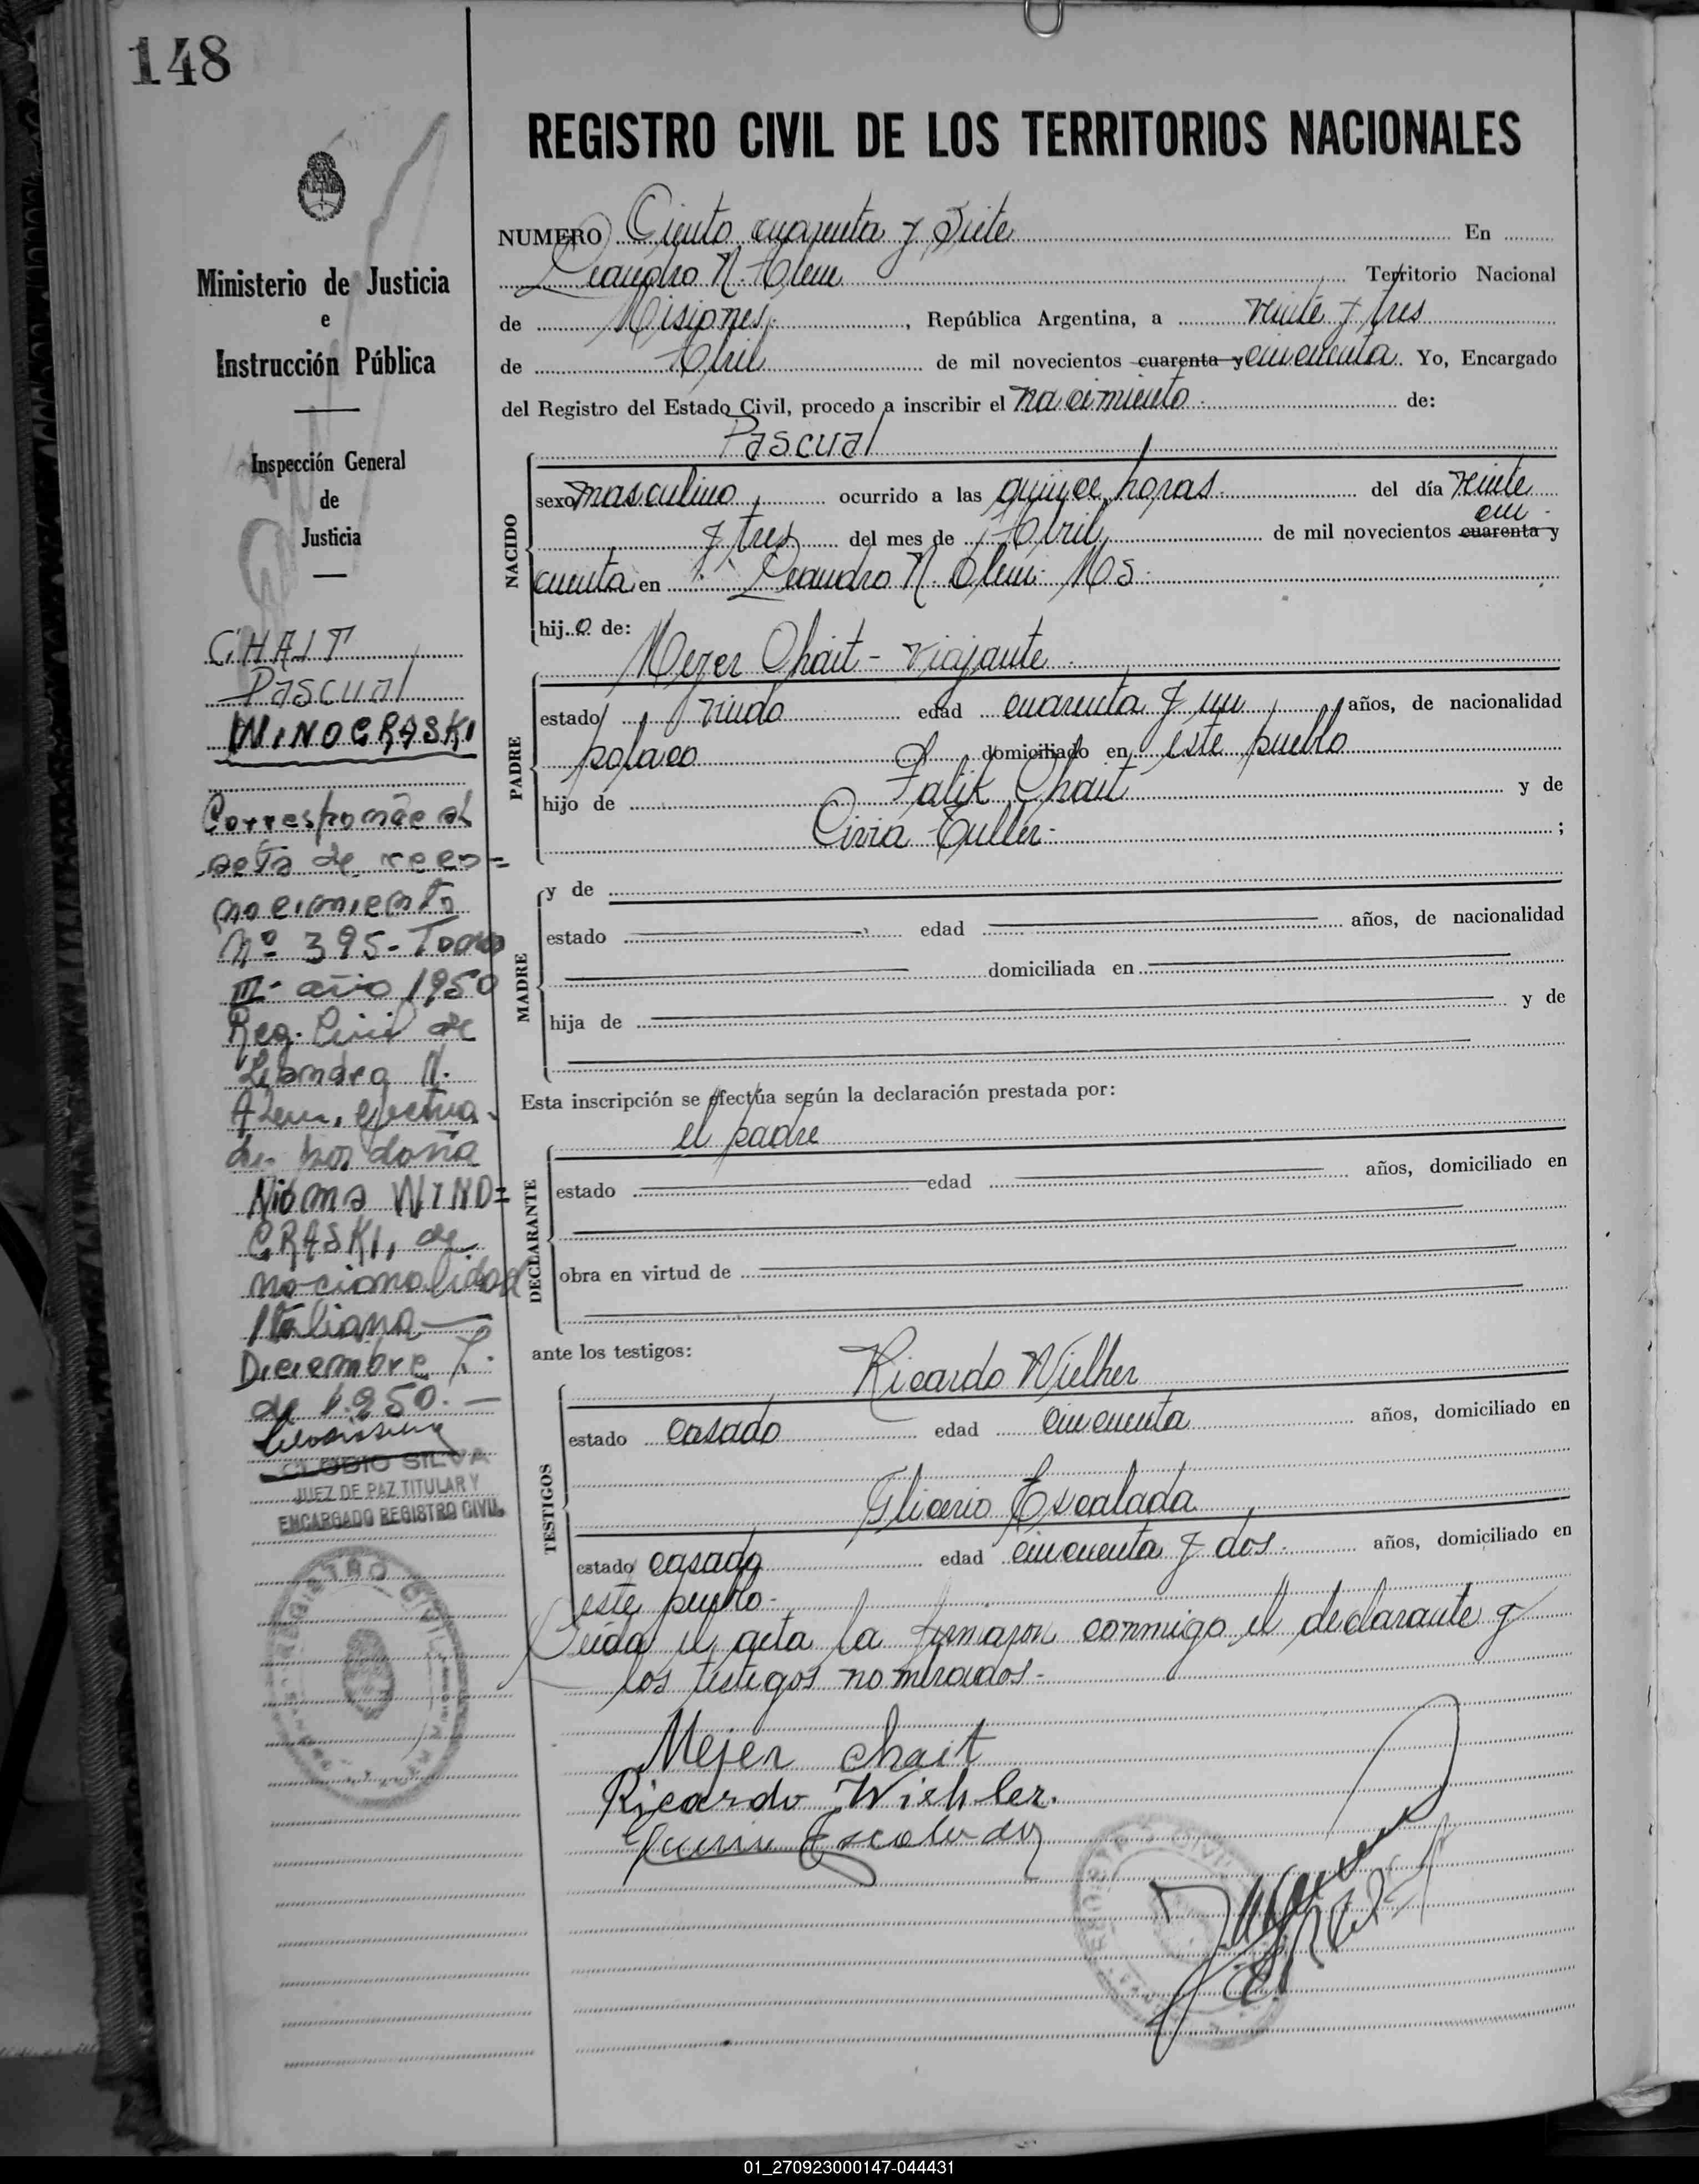 148
Ministerio de Justicia
e
Instrucción Pública
Inspección General
de
Justicia
CHAIT
Pascual
WINOGRASKI
Corresponde al
acta de reco=
nocimiento
Nº 395-Tomo
III- año 1950
Reg. Civil de
Leandro N.
Alem, efectua-
da por doña
Nioma WINO=
GRASKI, de
nacionalidad
Italiana
Diciembre 7.
de 1.950.-
CLODIO SILVA
JUEZ DE PAZ TITULAR Y
ENCARGADO REGISTRO CIVIL
REGISTRO CIVIL
REGISTRO CIVIL DE LOS TERRITORIOS NACIONALES
NUMERO Ciento cuarenta y siete En
Leandro N. Alem Territorio Nacional
de Misiones, República Argentina, a veinte y tres
de Abril de mil novecientos cuarenta y cincuenta. Yo, Encargado
del Registro del Estado Civil, procedo a inscribir el nacimiento de:
Pascual
NACIDO
sexo masculino, ocurrido a las quince horas del día veinte
y tres del mes de Abril, de mil novecientos cuarenta y cin-
cuenta en Leandro N. Alem Mos.
hijo de:
Mezer Chait - viajante
PADRE
estado viudo edad cuarenta y un años, de nacionalidad
polaco domiciliado en este pueblo
hijo de Falik Chait y de
Civia Tuller ;
MADRE
y de
estado edad años, de nacionalidad
domiciliada en
hija de y de
Esta inscripción se efectúa según la declaración prestada por:
el padre
DECLARANTE
estado edad años, domiciliado en
obra en virtud de
ante los testigos:
Ricardo Wielher
TESTIGOS
estado casado edad cincuenta años, domiciliado en
Glicerio Escalada
estado casado edad cincuenta y dos años, domiciliado en
este pueblo-
Leída el acta la firmaron conmigo el declarante y
los testigos nombrados-
Mejer chait
Ricardo Wiehler.
Escalada
01_270923000147-044431